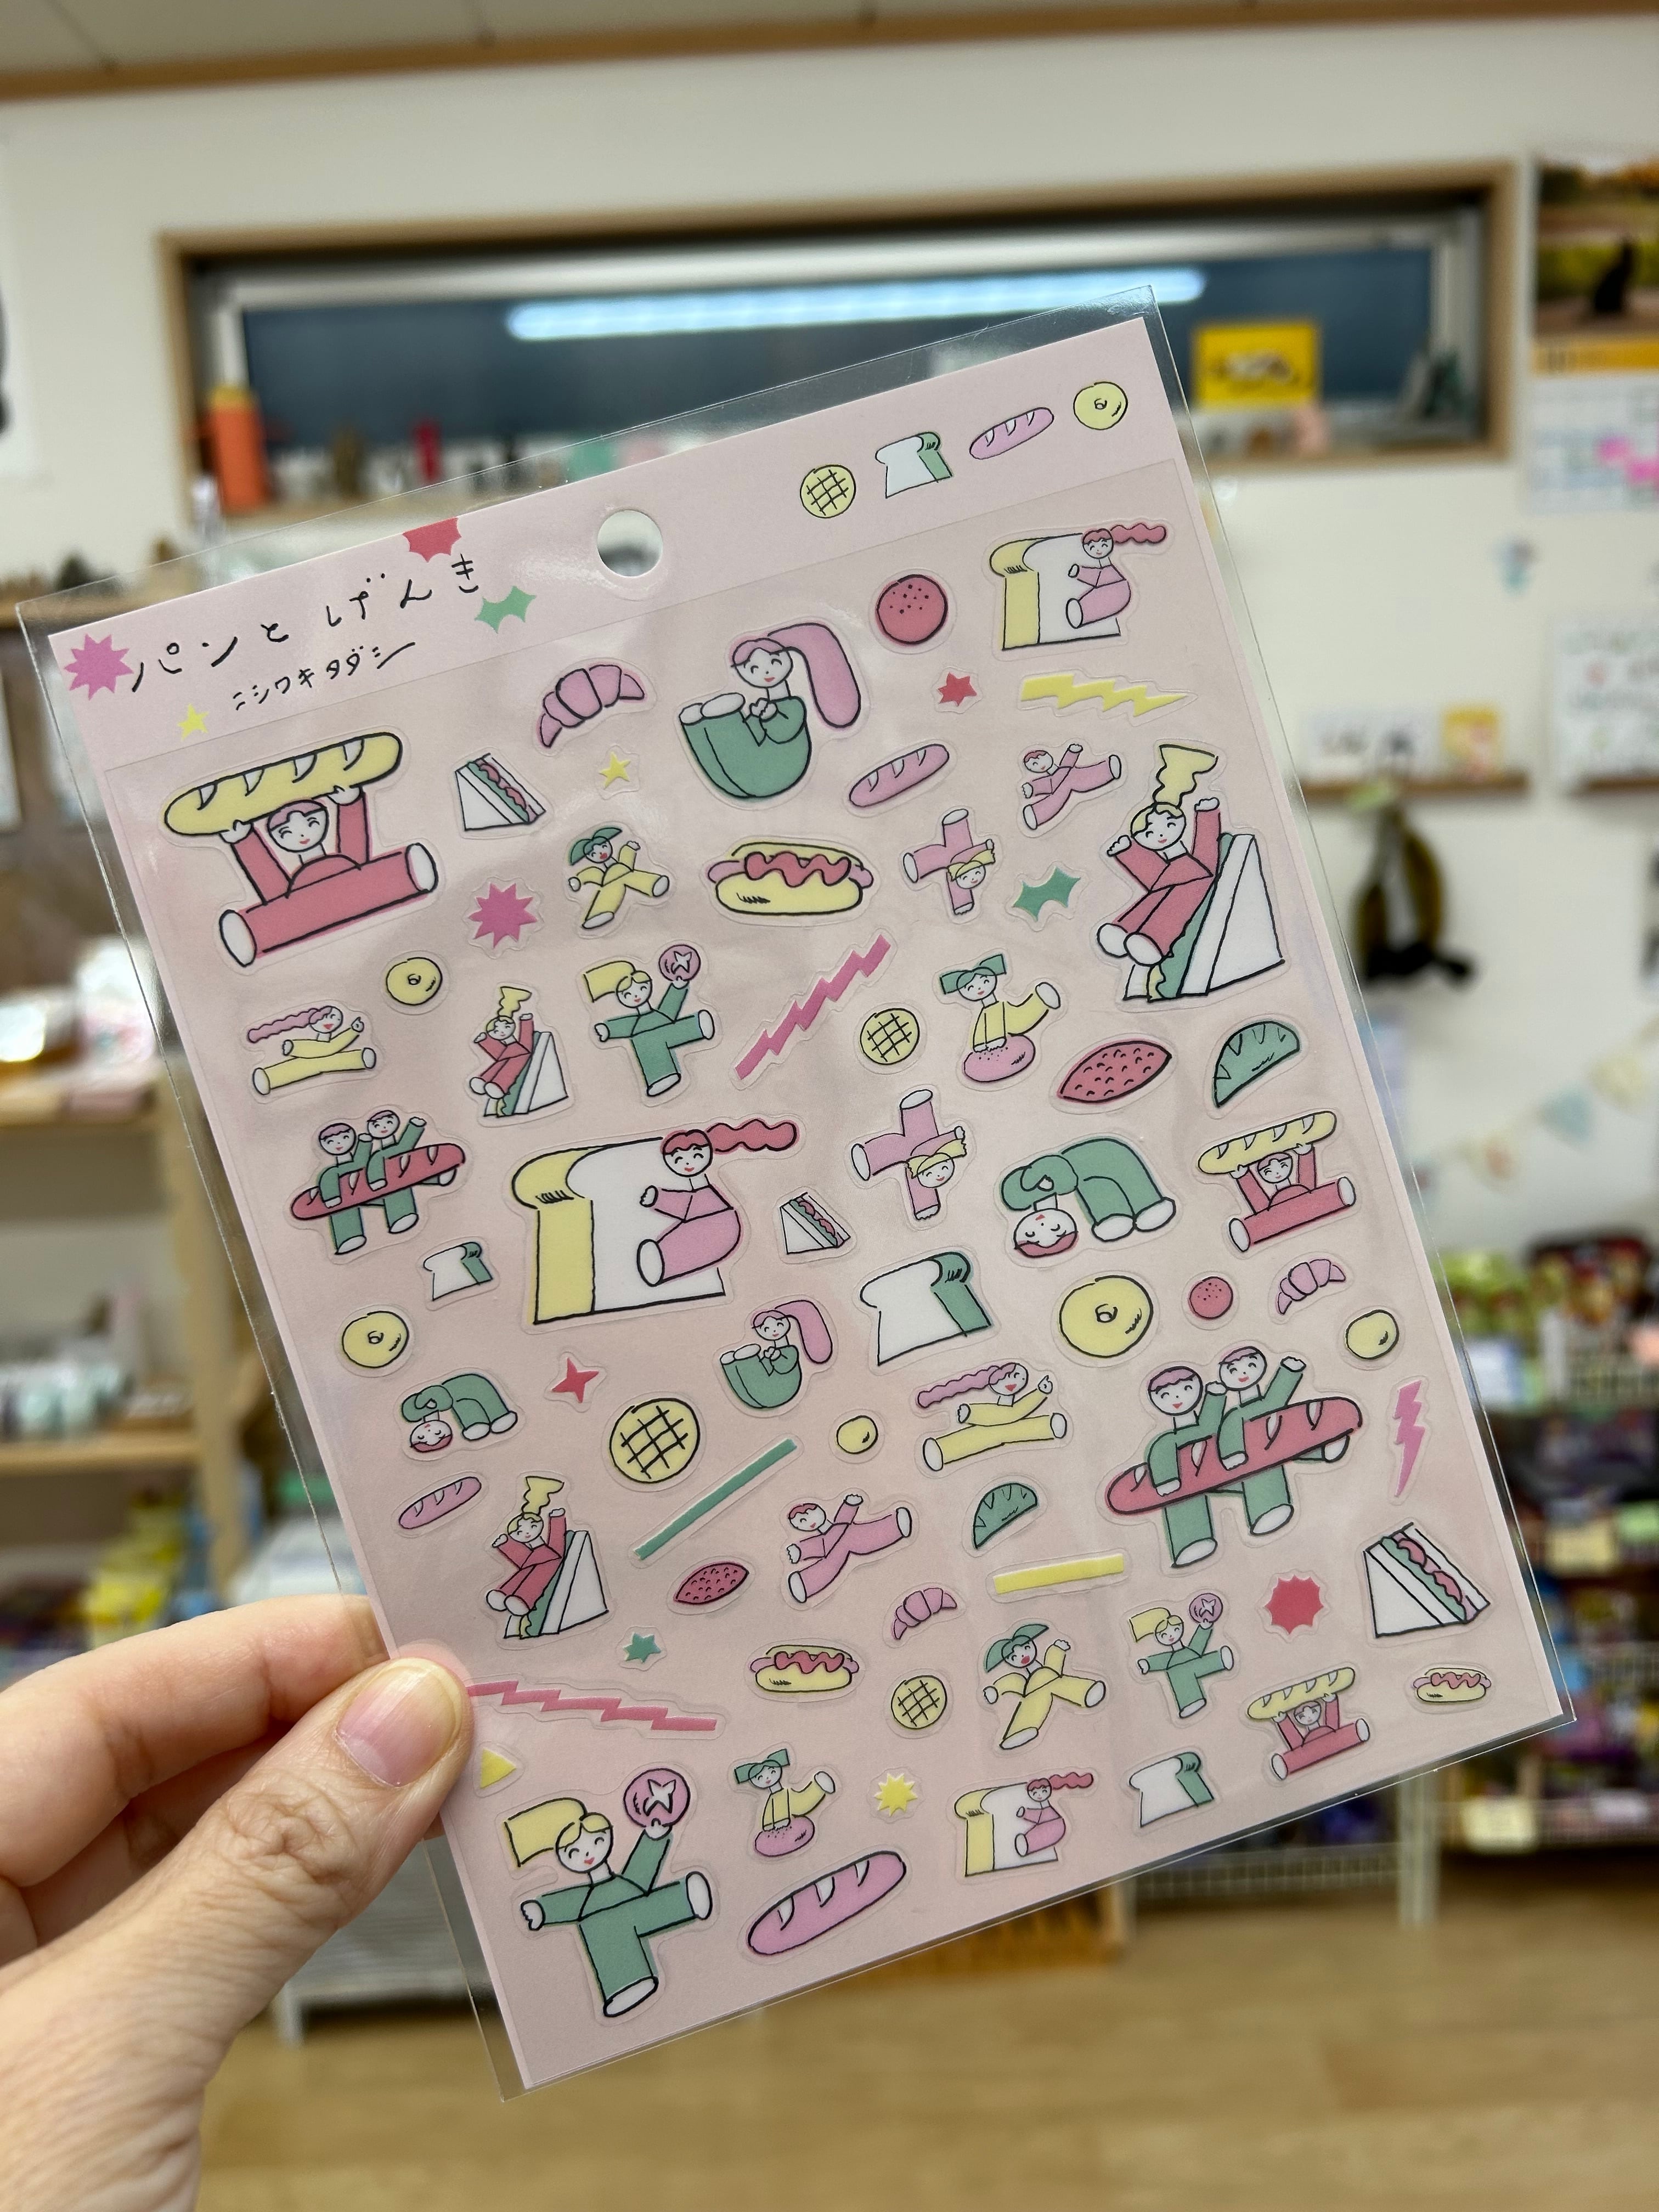 パンと げんき
ニシワキタダシ